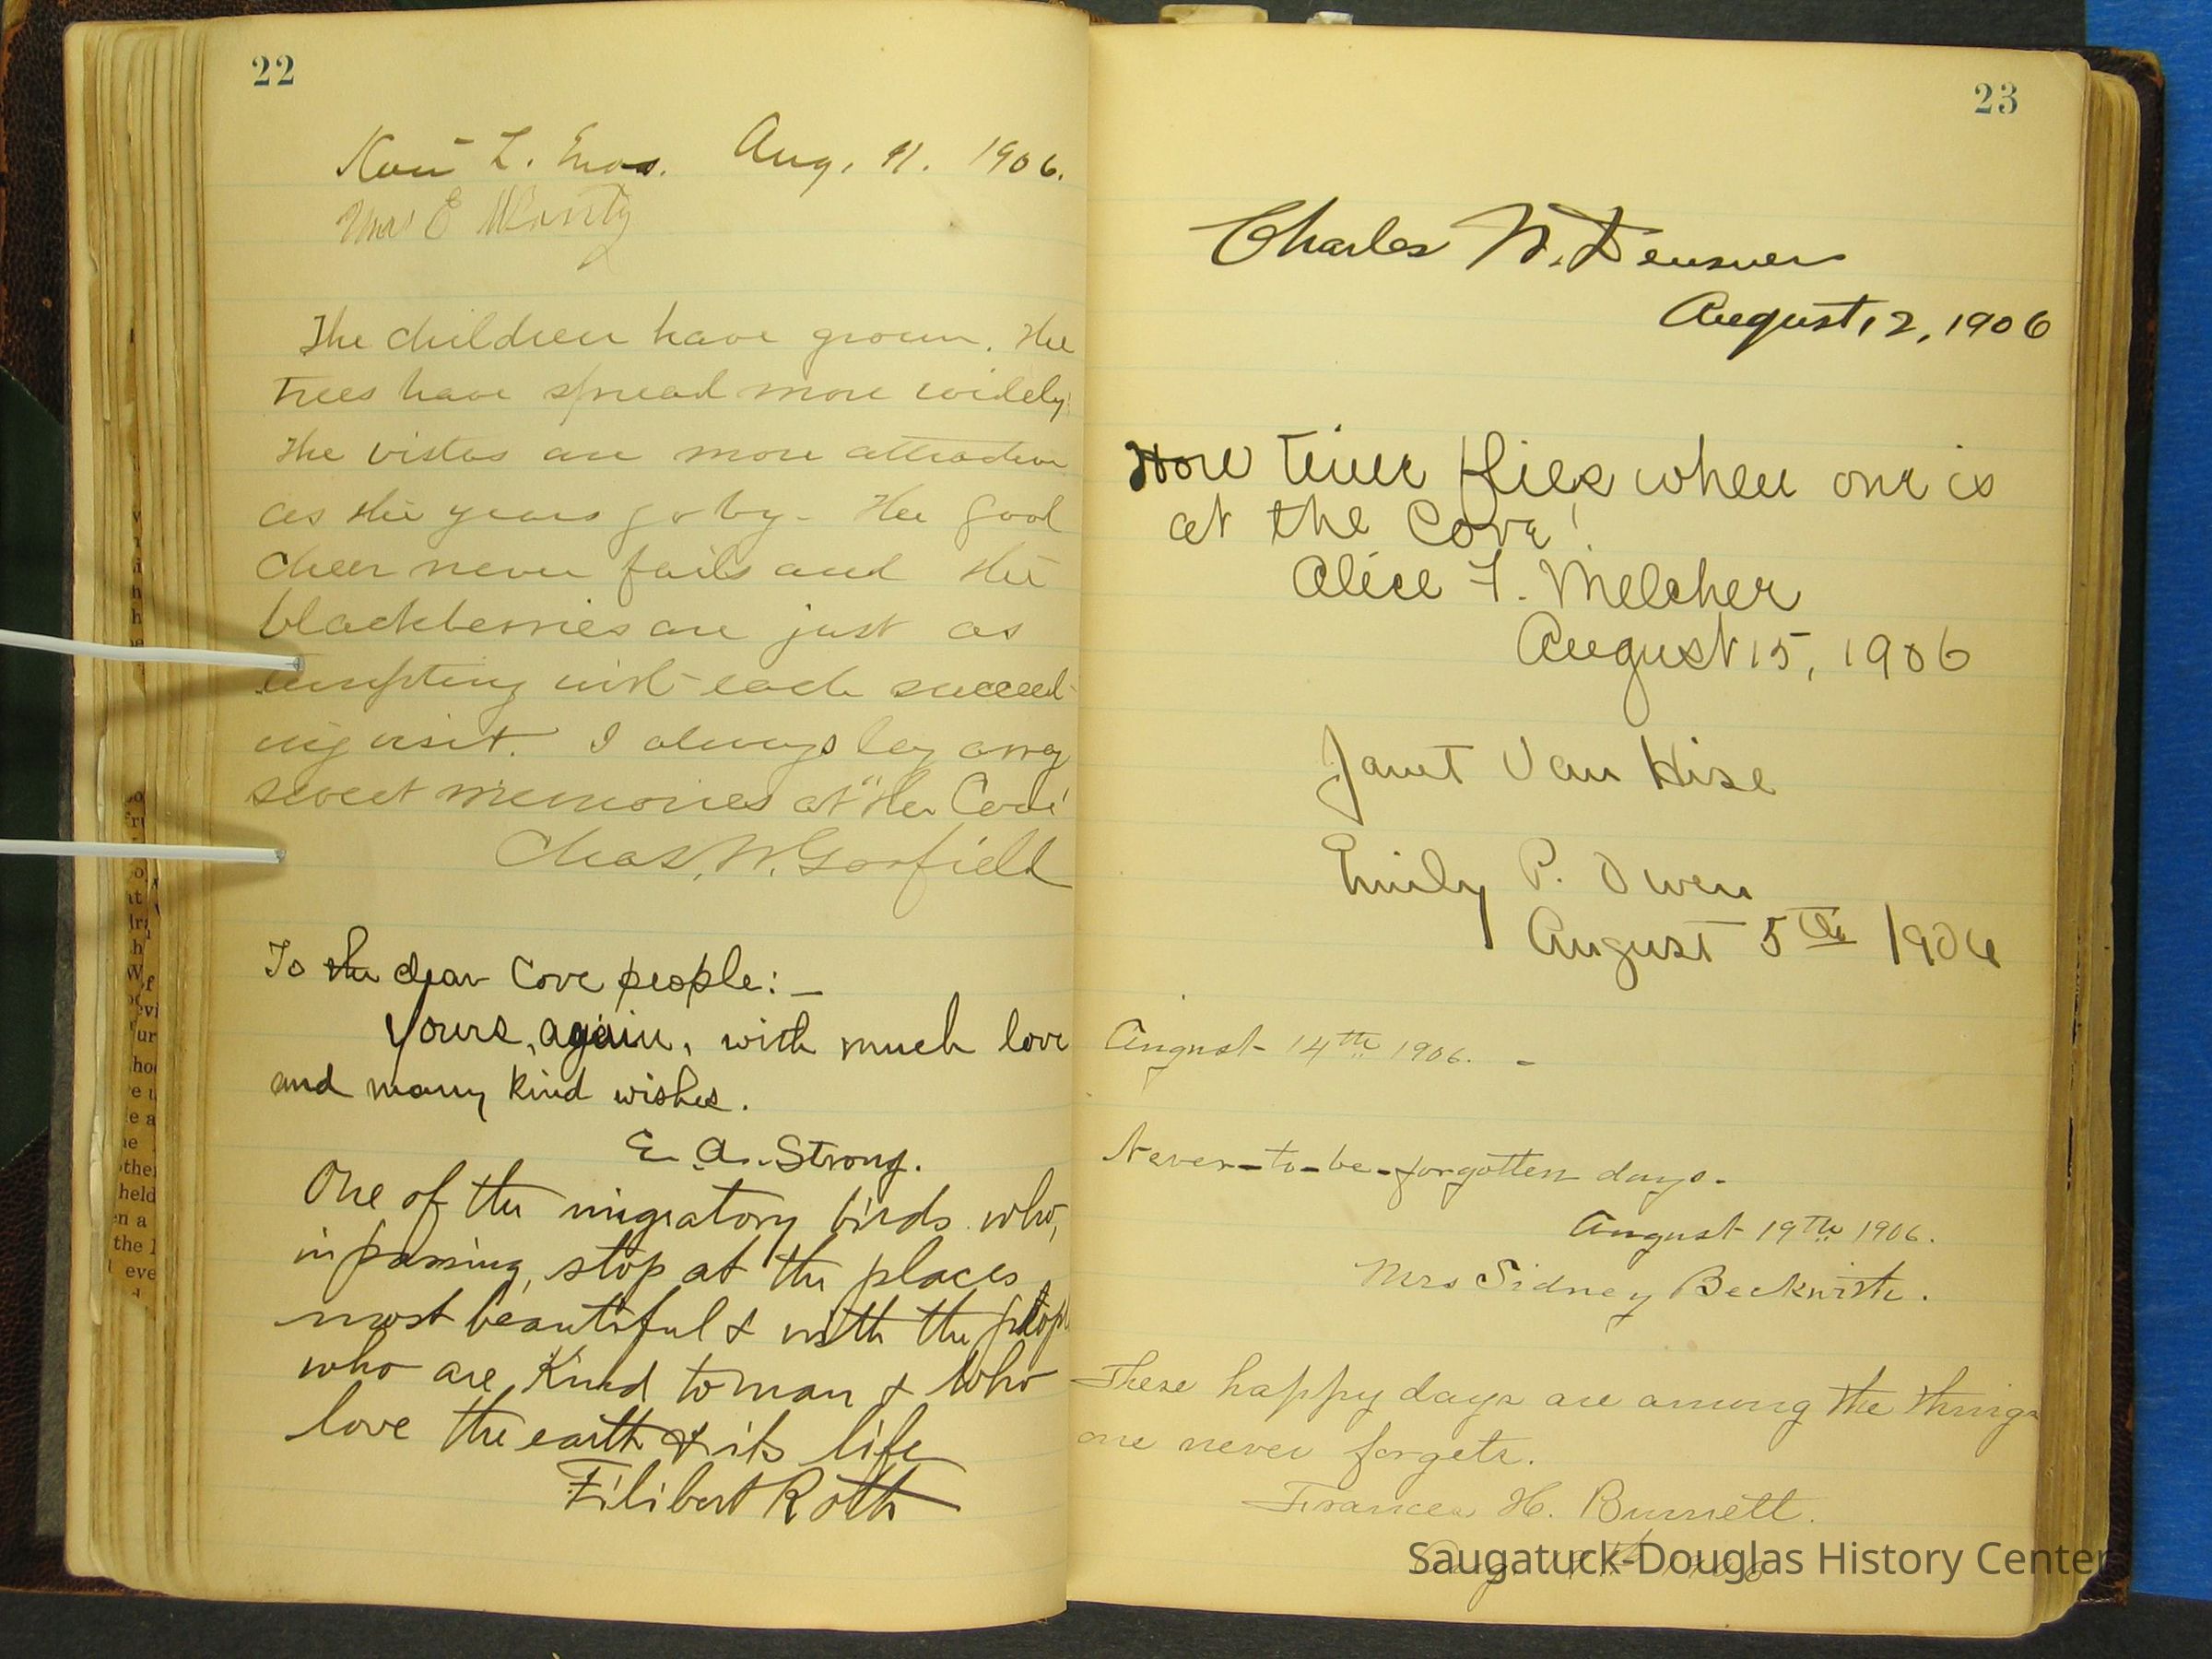 22
L. Enos. Aug. 11. 1906.
Mrs E
The children have grown. The
trees have spread more widely;
the vistas are more attractive
as the years go by - The good
cheer never fails and the
blackberries are just as
tempting with each succeed-
ing visit. I always lay away
sweet memories at "the Cove"
Chas. W. Garfield
To the dear Cove people: -
Yours, again, with much love
and many kind wishes.
E. A. Strong.
One of the migratory birds who,
in passing, stop at the places
most beautiful & with the
who are kind to man & who
love the earth & its life
Filibert Roth
23
Charles W.
August 12, 1906
How time flies when one is
at the Cove!
Alice F. Melcher
August 15, 1906
Janet Van Hise
Emily P. Owen
August 5th 1906
August 14th 1906. -
Never-to-be-forgotten days.
August 19th 1906.
Mrs Sidney Beckwith.
These happy days are among the things
one never forgets.
Frances H. Burnett.
Aug. 19th 1906
Saugatuck-Douglas History Center